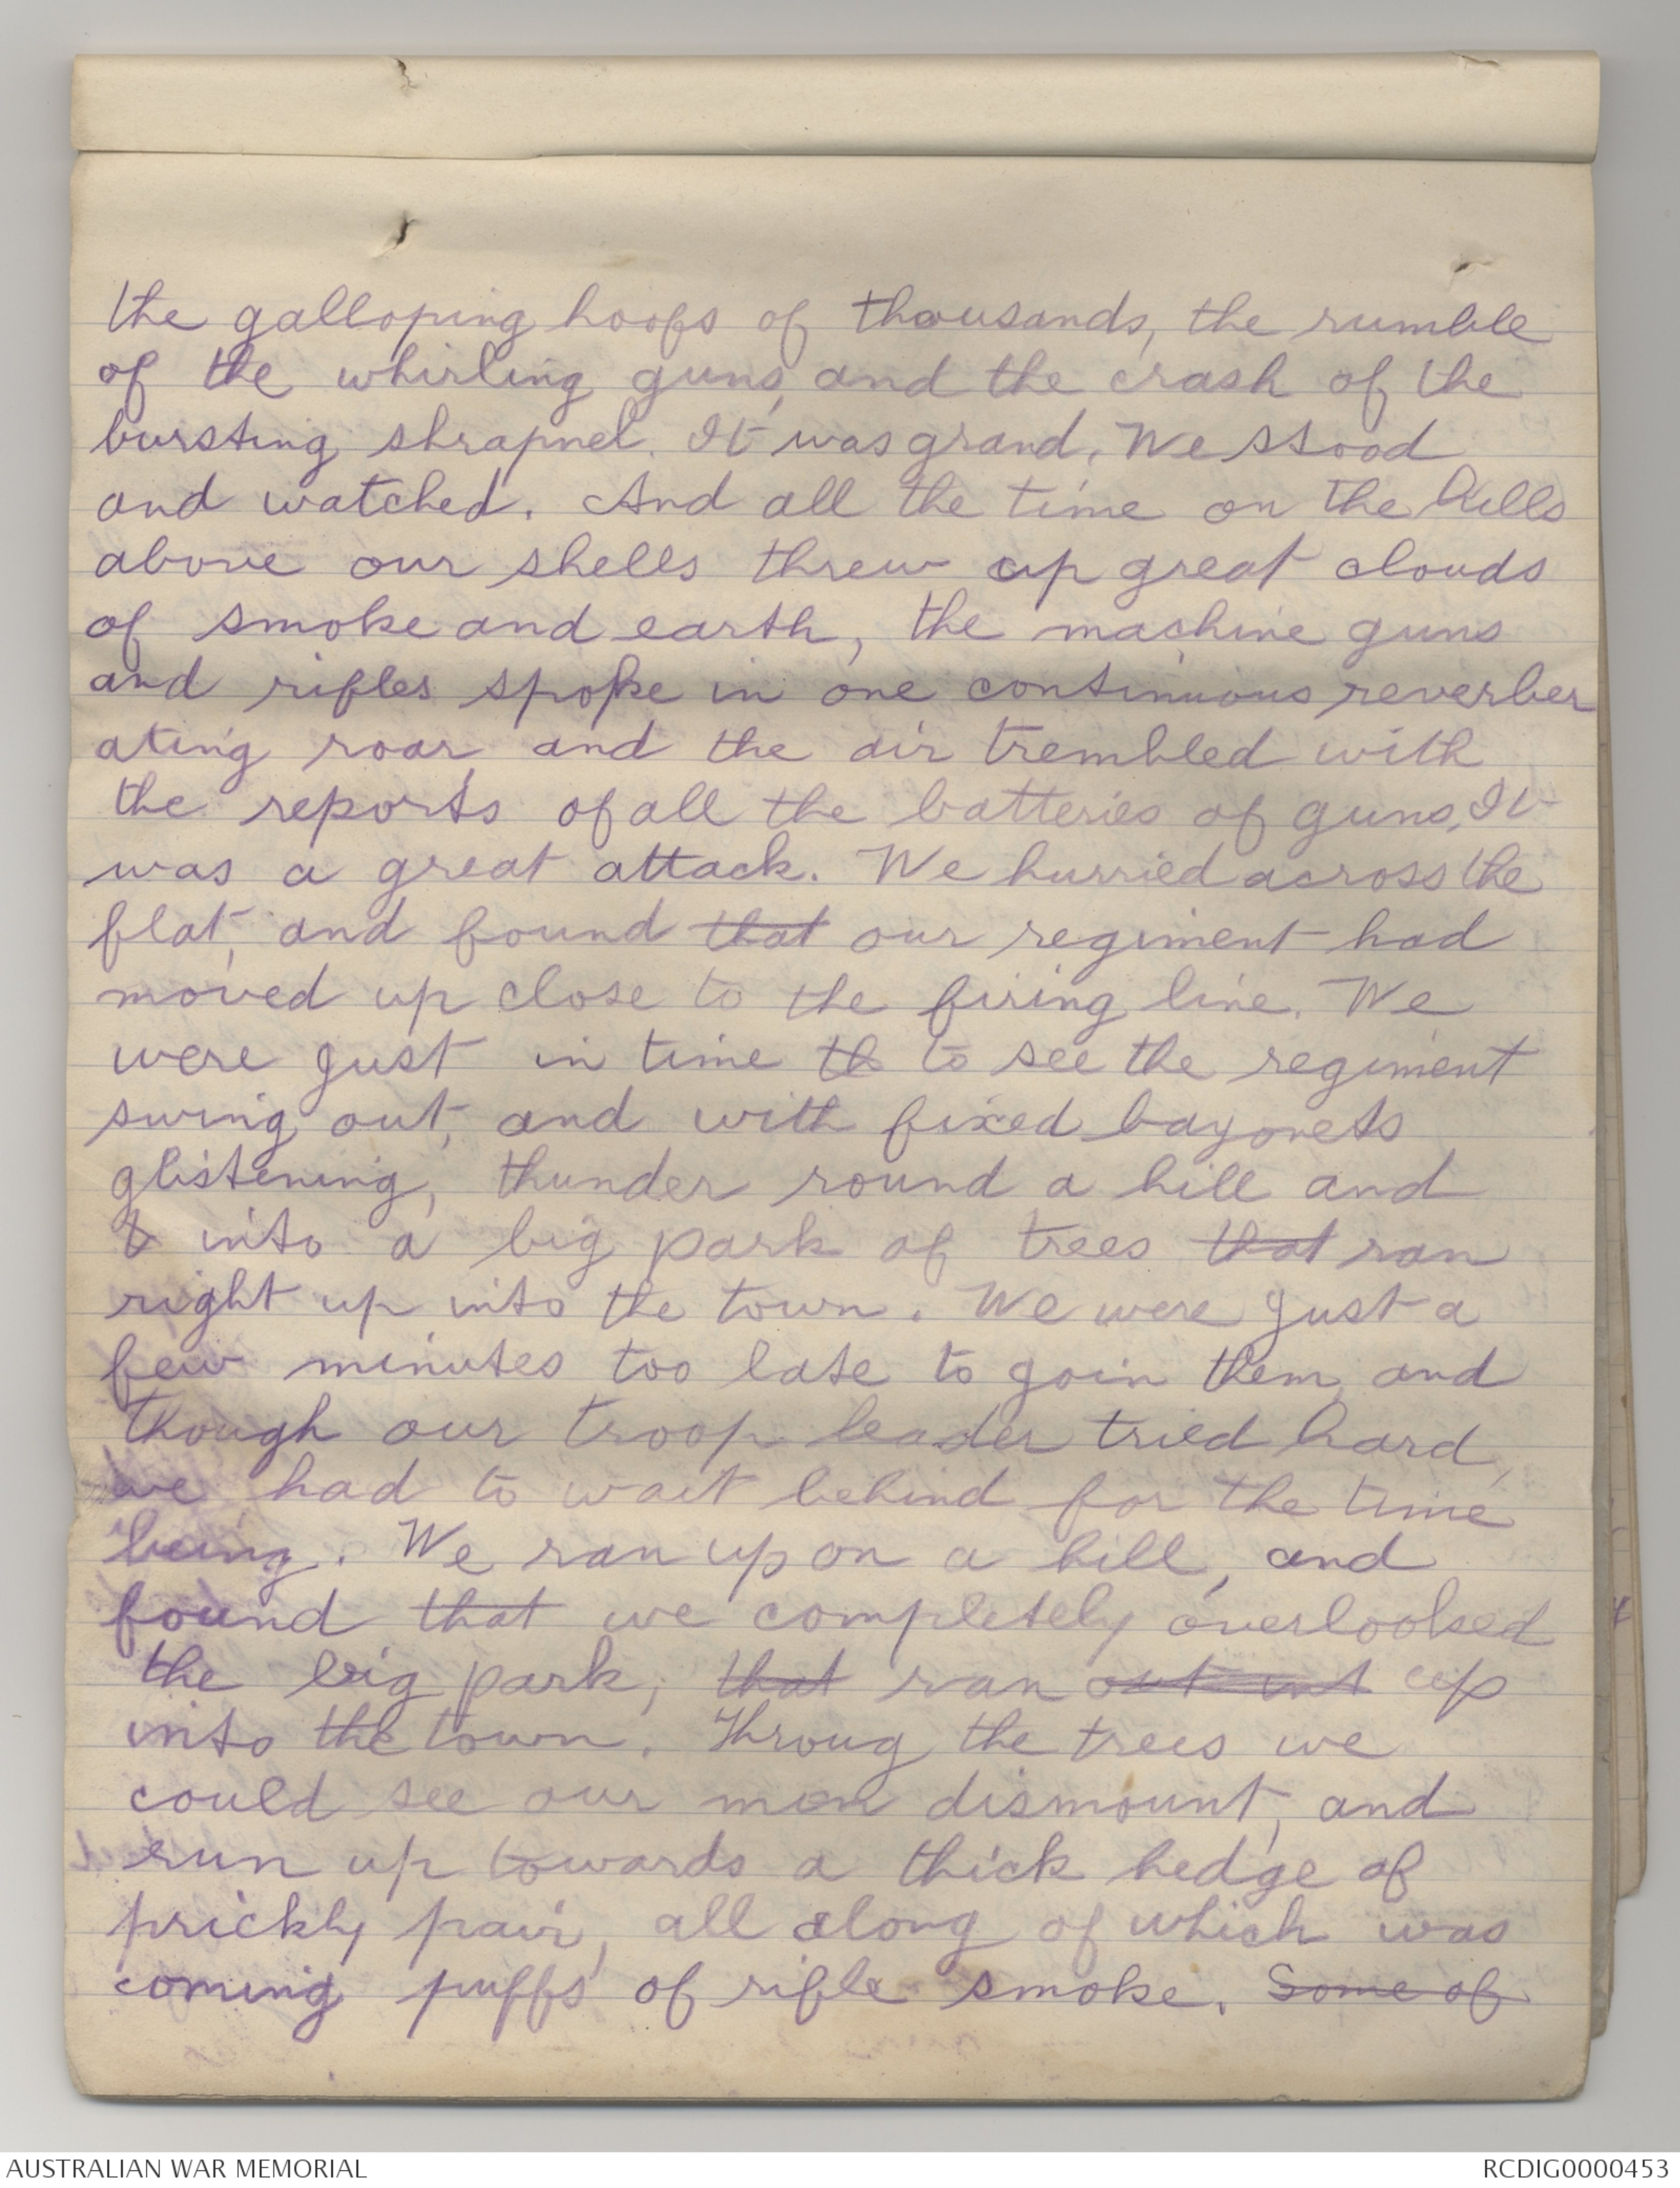 the galloping hoofs of thousands, the rumble
of the whirling guns, and the crash of the
bursting shrapnel. It was grand. We stood
and watched. And all the time on the hills
above our shells threw up great clouds
of smoke and earth, the machine guns
and rifles spoke in one continuious reverber
ating roar and the air trembled with
the reports of all the batteries of guns. It
was a great attack. We hurried across the
flat, and found that our regiment had
moved up close to the firing line. We
were just in time th to see the regiment
swing out, and with fixed bayonets
glistening, thunder round a hill and
& into a big park of trees that ran
right up into the town. We were just a
few minutes too late to join them, and
though our troop leader tried hard,
we had to wait behind for the time
being. We ran up on a hill, and
found that we completely overlooked
the big park, that ran out int up
into the town. Throug the trees we
could see our men dismount, and
run up towards a thick hedge of
prickly pair, all along of which was
coming puffs of rifle smoke. Some of
AUSTRALIAN WAR MEMORIAL
RCDIG0000453